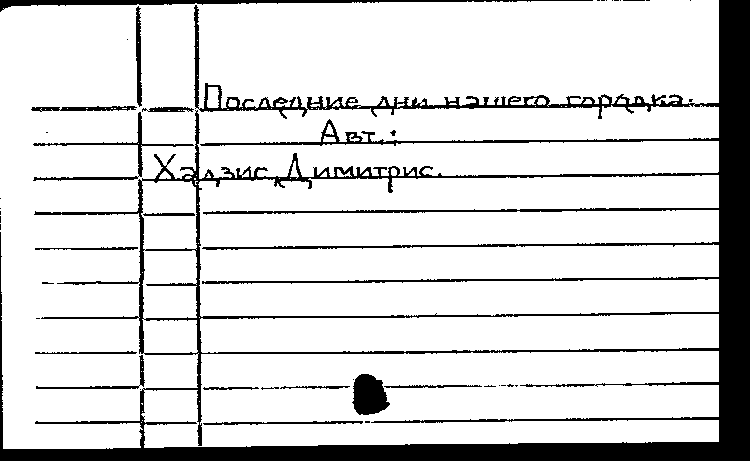 Последние дни нашего городка.
Авт.:
Хадзис, Димитрис.